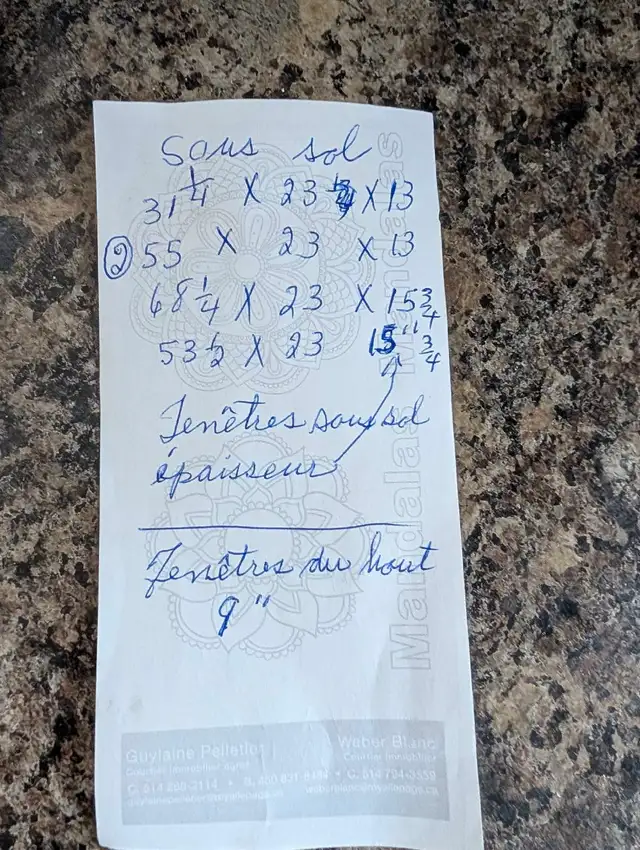 Sous sol
31 1/4 X 23 X 13
② 55 X 23 X 13
68 1/4 X 23 X 15 3/4
53 1/2 X 23 15" 3/4
Fenêtres sous sol
épaisseur
Fenêtres du haut
9"
Mandalas Mandalas
Guylaine Pelletier
Weber Blanc
Courtier immobilier agréé
Courtier immobilier